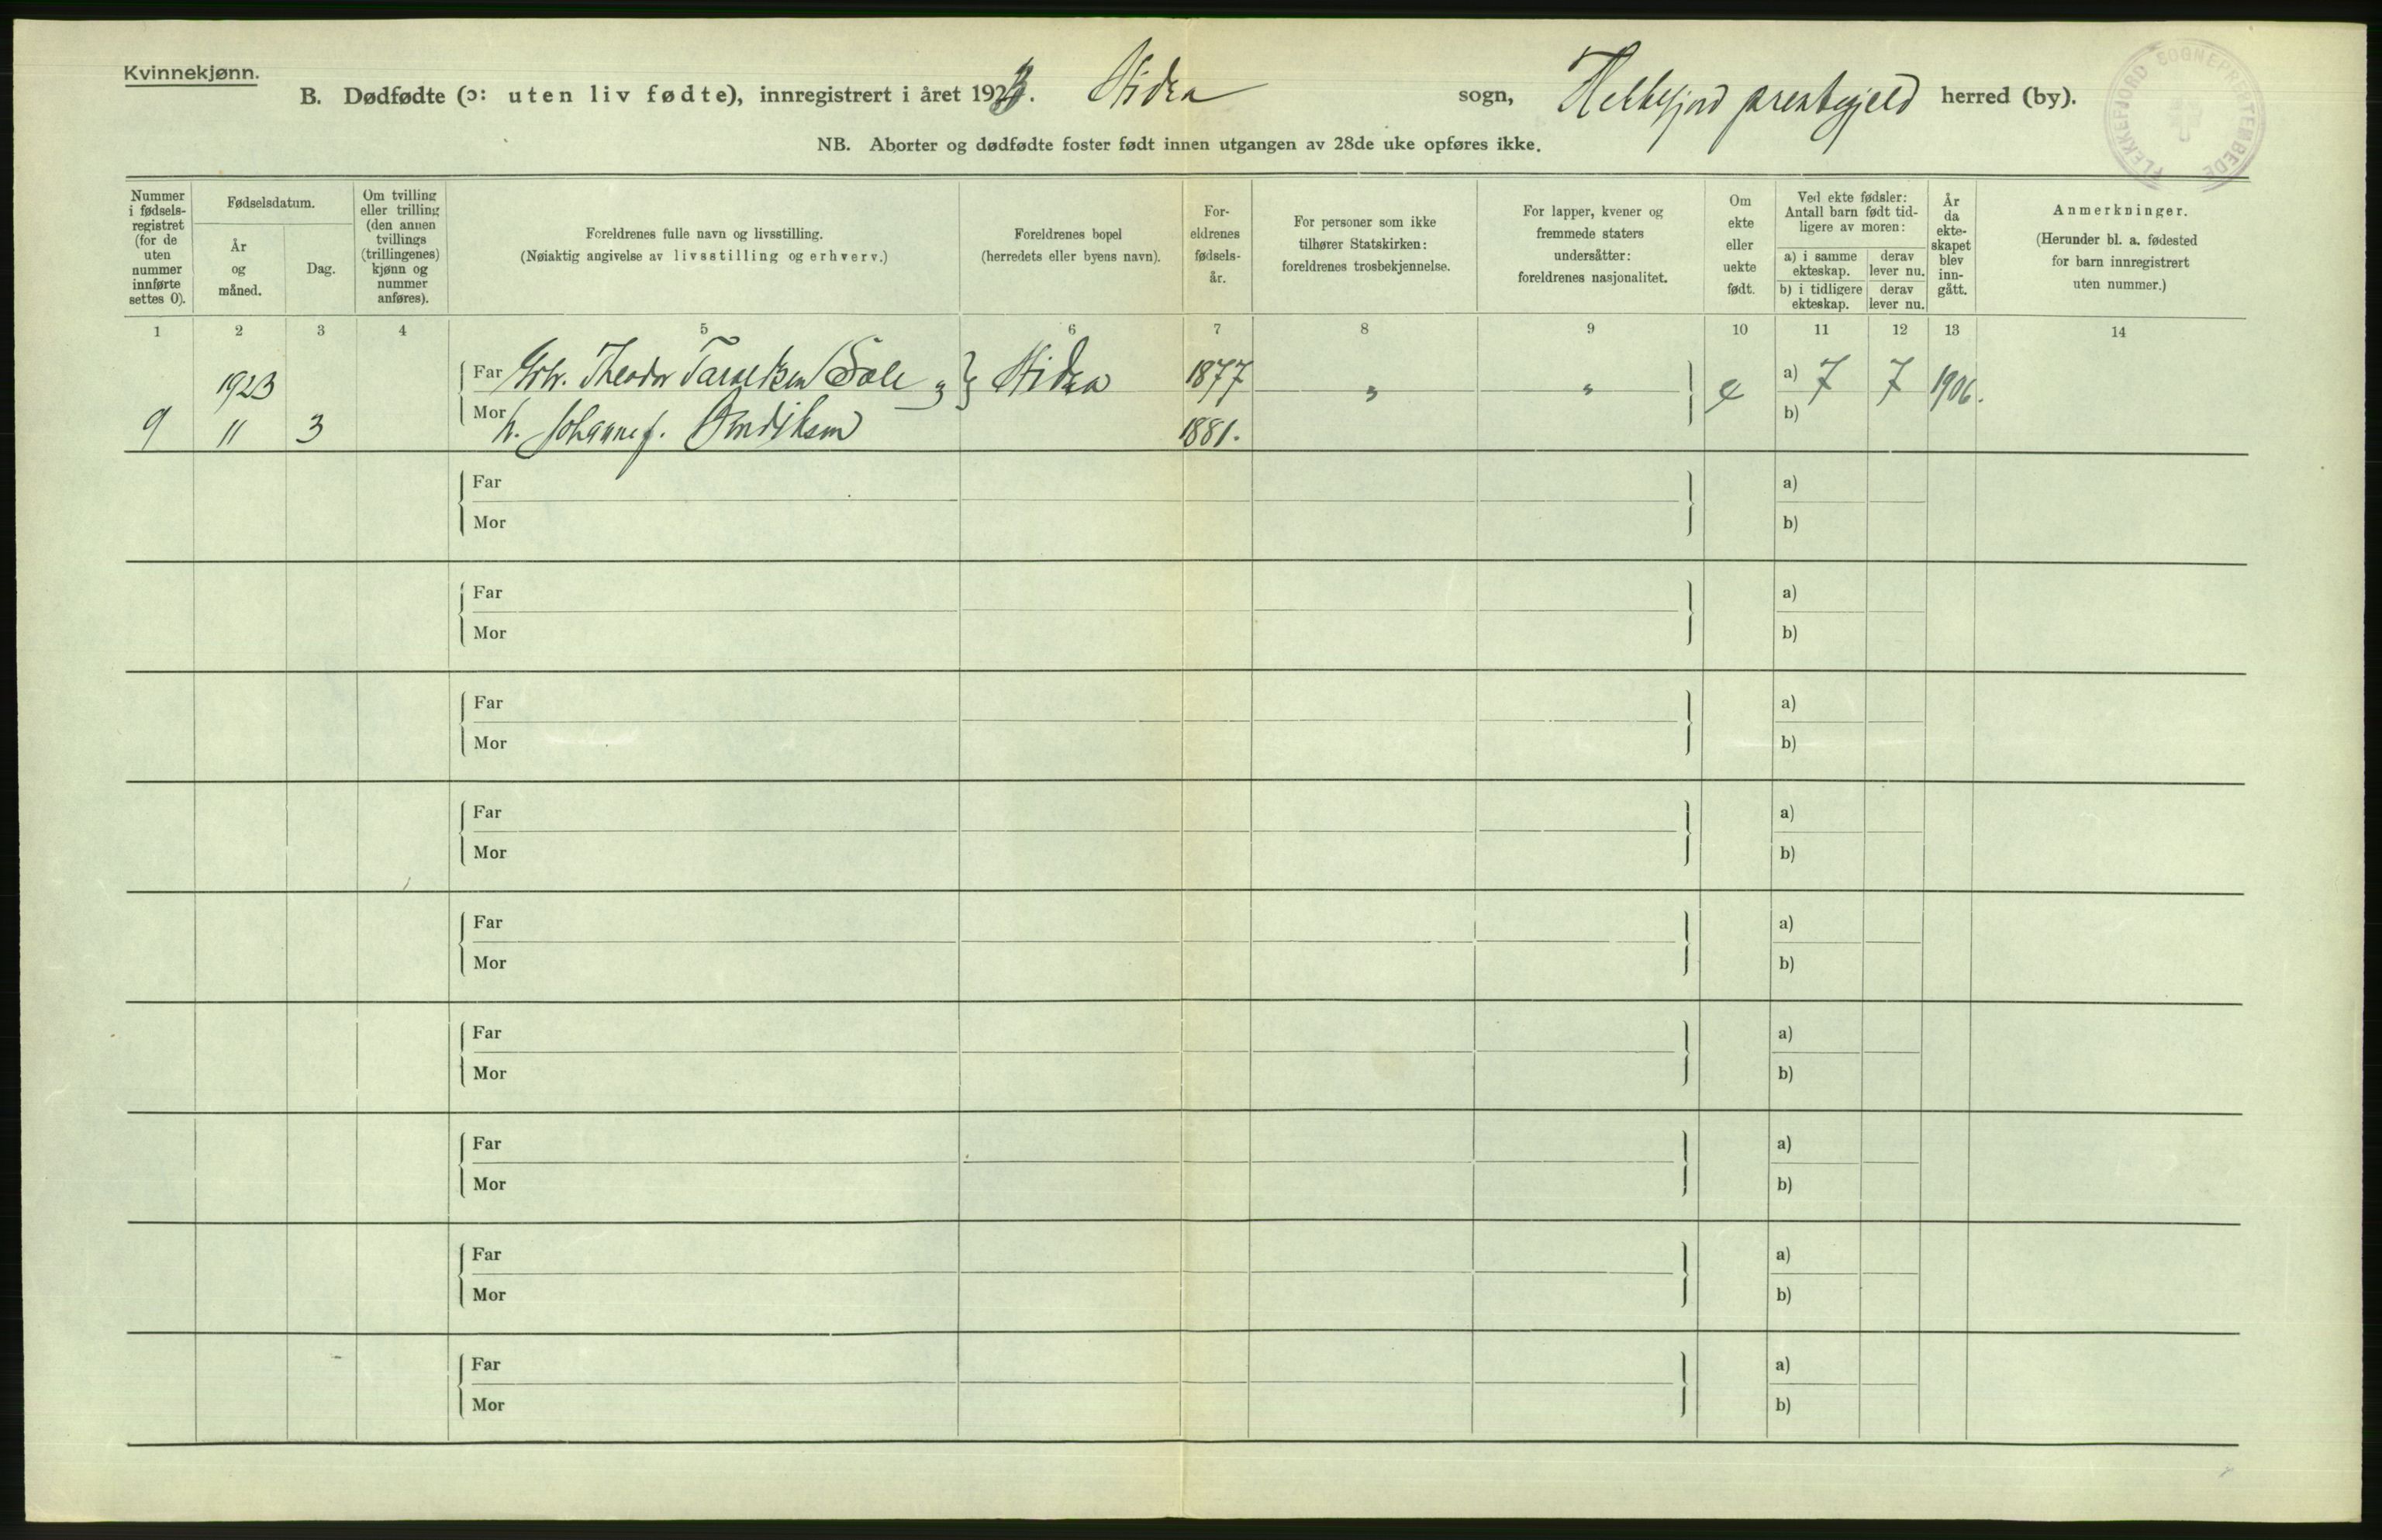 Kvinnekjønn.
B. Dødfødte (ɔ: uten liv fødte), innregistrert i året 1923. Hidra sogn, Flekkefjord prestegjeld herred (by).
NB. Aborter og dødfødte foster født innen utgangen av 28de uke opføres ikke.
FLEKKEFJORD SOGNEPRESTEMBEDE
Nummer i fødsels-registret (for de uten nummer innførte settes 0).
Fødselsdatum.
År og måned.
Dag.
Om tvilling eller trilling (den annen tvillings (trillingenes) kjønn og nummer anføres).
Foreldrenes fulle navn og livsstilling.
(Nøiaktig angivelse av livsstilling og erhverv.)
Foreldrenes bopel
(herredets eller byens navn).
For-eldrenes fødsels-år.
For personer som ikke tilhører Statskirken: foreldrenes trosbekjennelse.
For lapper, kvener og fremmede staters undersåtter: foreldrenes nasjonalitet.
Om ekte eller uekte født.
Ved ekte fødsler: Antall barn født tid-ligere av moren:
a) i samme ekteskap.
derav lever nu.
b) i tidligere ekteskap.
derav lever nu.
År da ekte-skapet blev inn-gått.
Anmerkninger.
(Herunder bl. a. fødested for barn innregistrert uten nummer.)
1 2 3 4 5 6 7 8 9 10 11 12 13 14
1923
Far Theodor Hidra 1877 " " e a) 7 7 1906.
9 11 3 Mor h. Johanne 1881. b)
Far a)
Mor b)
Far a)
Mor b)
Far a)
Mor b)
Far a)
Mor b)
Far a)
Mor b)
Far a)
Mor b)
Far a)
Mor b)
Far a)
Mor b)
Far a)
Mor b)